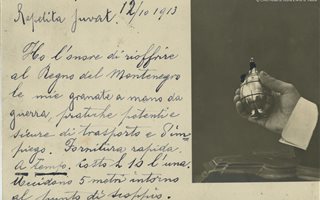 Repetita Juvat. 12/10 1913
Ho l'onore di rioffrire
al Regno del Montenegro
le mie granate a mano da
guerra, pratiche potenti e
sicure di trasporto e d'im-
piego. Fornitura rapida.
A tempo. Costo £ 13 l'una.
Uccidono 5 metri intorno
al punto di scoppio.